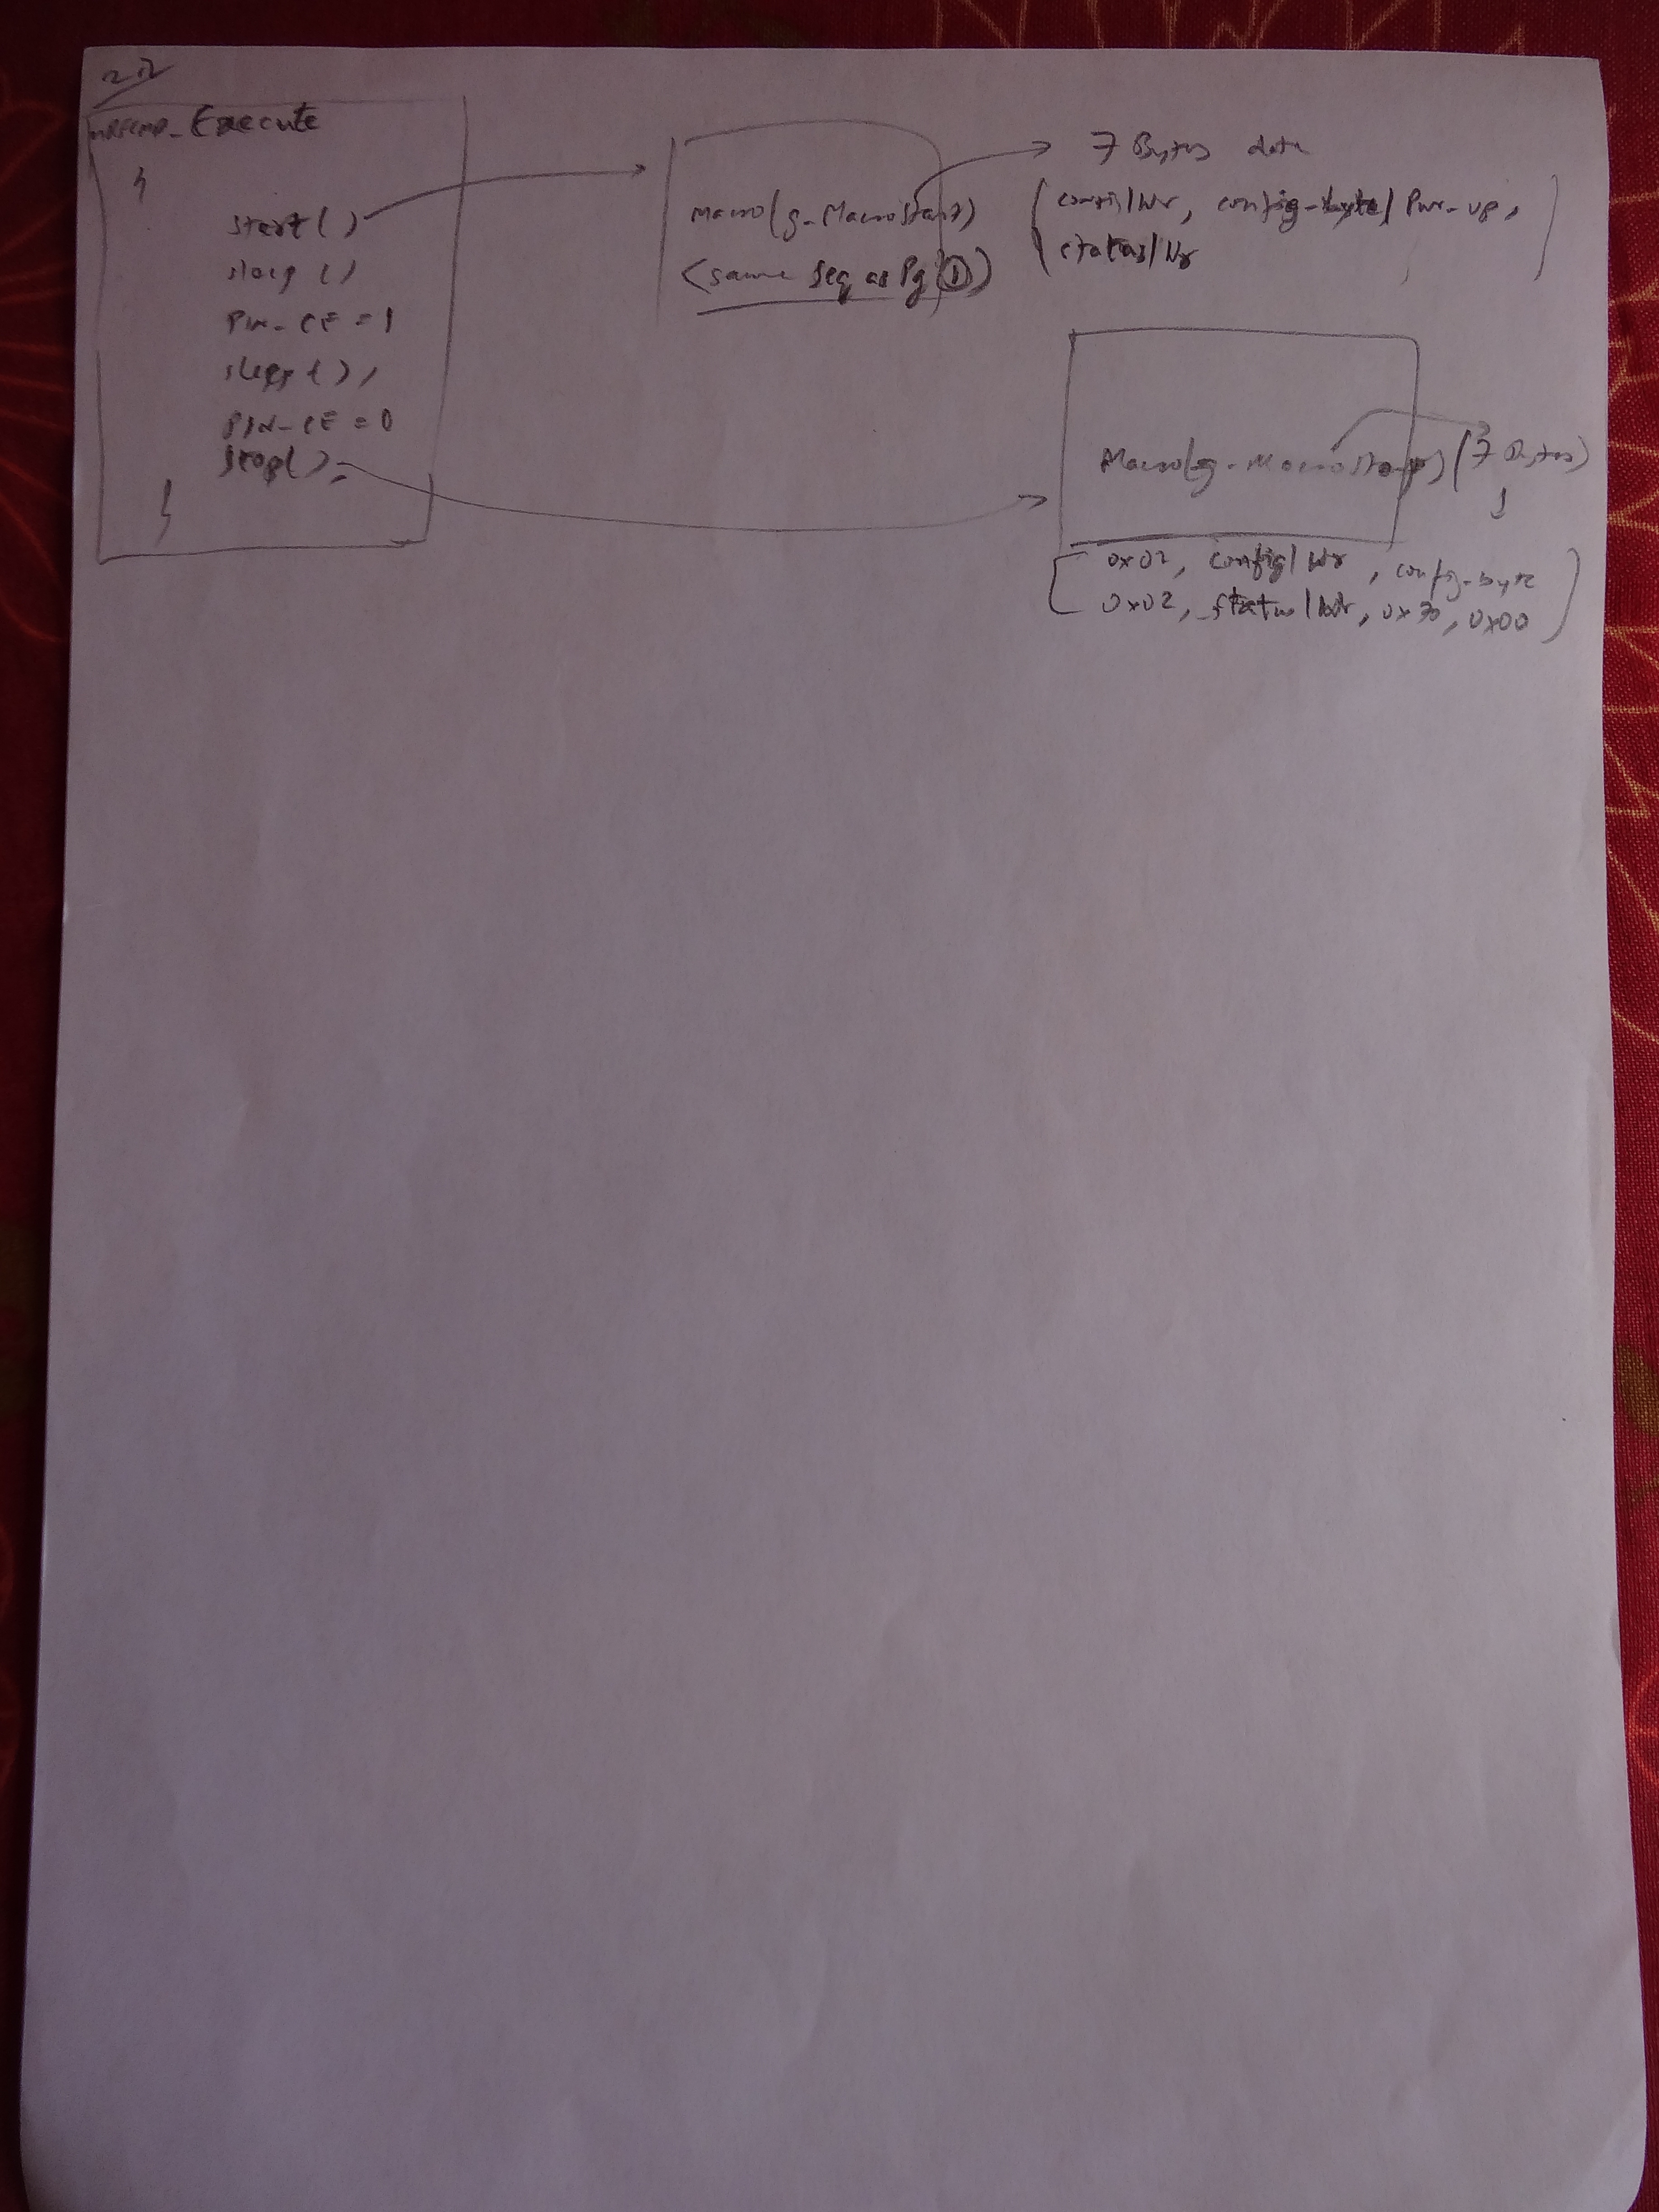 Execute
{
start()
sleep ()
PIN-CE = 1
sleep();
PIN-CE = 0
Stop();
}
Macro(g-MacroStart)
(same Seq as Pg ①)
7 Bytes data
(config/Wr, config-byte/Pwr-up,
status/Wr)
Macro(g-MacroStop) (7 Bytes)
[0x02, config/Wr, config-byte
0x02, status/Wr, 0x70, 0x00]